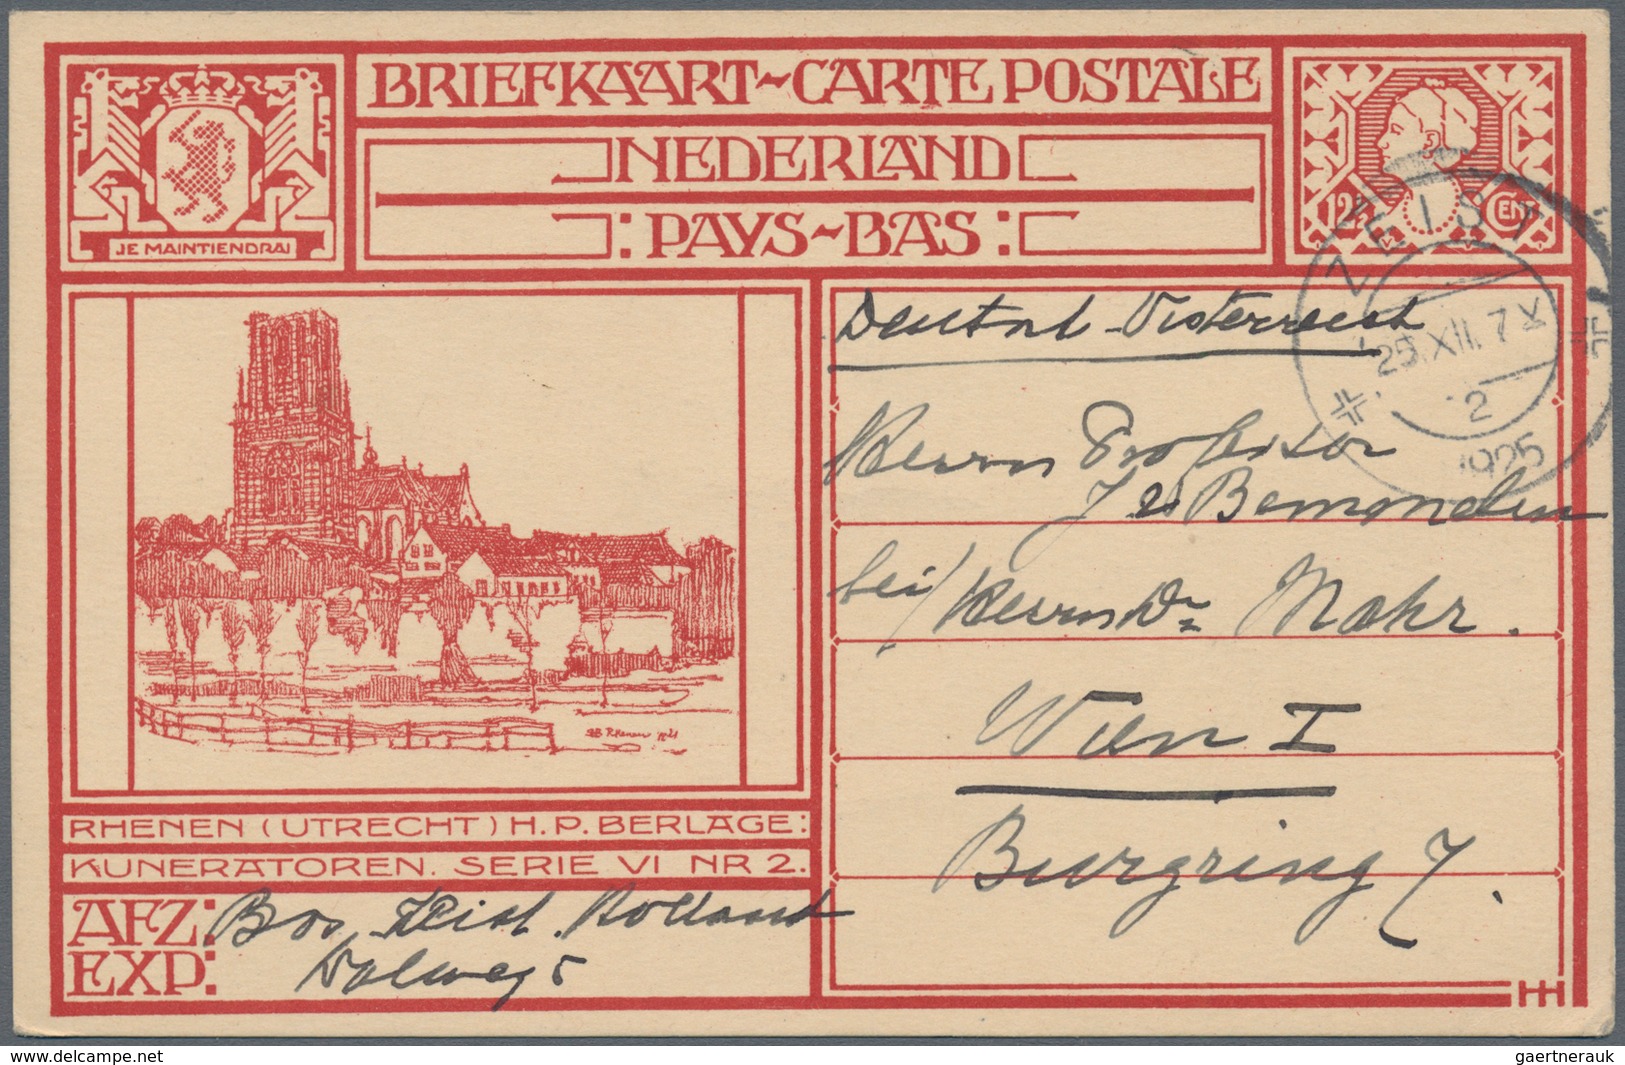 BRIEFKAART~CARTE POSTALE
NEDERLAND
:PAYS~BAS:
JE MAINTIENDRAI
12½ CENT
ZEIST
25.XII.7 V
2
1925
Deutsch Österreich
Herrn Professor
J Bemonden
bei/Herrn Dr Mohr.
Wien I
Burgring 7.
RHENEN (UTRECHT) H.P. BERLAGE:
KUNERATOREN. SERIE VI NR 2.
AFZ: Bos Zeist. Holland
EXP: 5
HB Rhenen 1921
delcampe.net
gaertnerauk